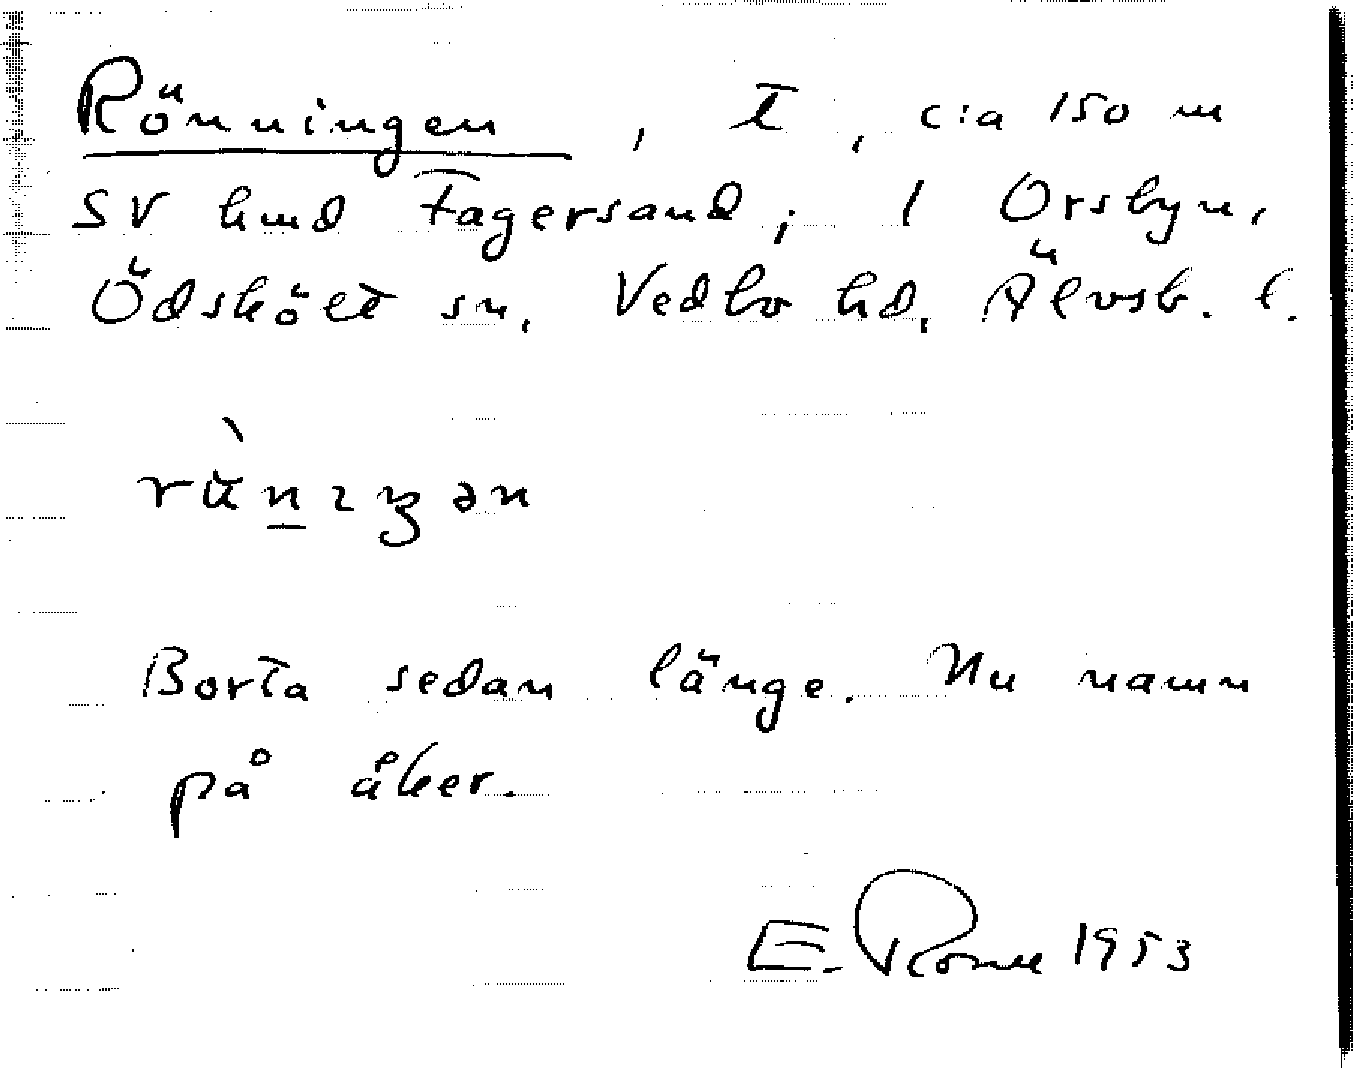 Rönningen, t, c:a 150 m
SV hmd Fagersand, i Orsbyn,
Ödskölt sn. Vedbo hd, Älvsb. l.
Borta sedan länge. Nu namn
på åker.
E. 1953